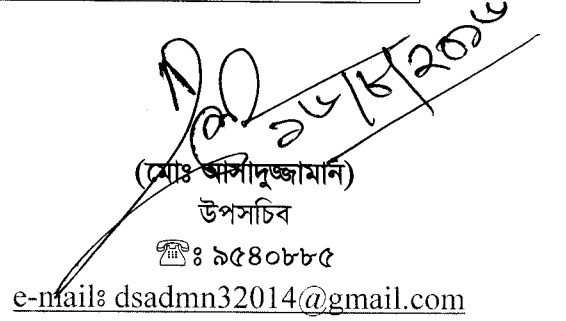 ১৬/৮/২০১৬
(মোঃ আসাদুজ্জামান)
উপসচিব
☏ঃ ৯৫৪০৮৮৫
e-mailঃ dsadmn32014@gmail.com